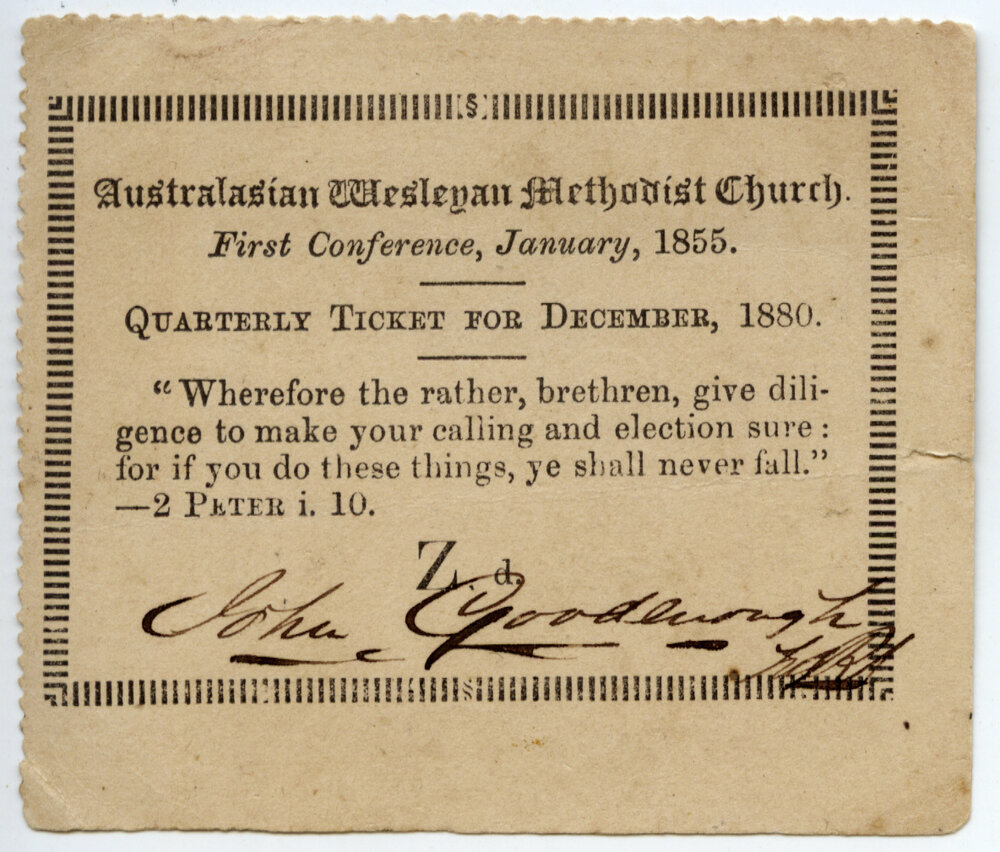 §
Australasian Wesleyan Methodist Church.
First Conference, January, 1855.
QUARTERLY TICKET FOR DECEMBER, 1880.
“Wherefore the rather, brethren, give dili-
gence to make your calling and election sure :
for if you do these things, ye shall never fall.”
—2 PETER i. 10.
Z. d.
John Goodenough